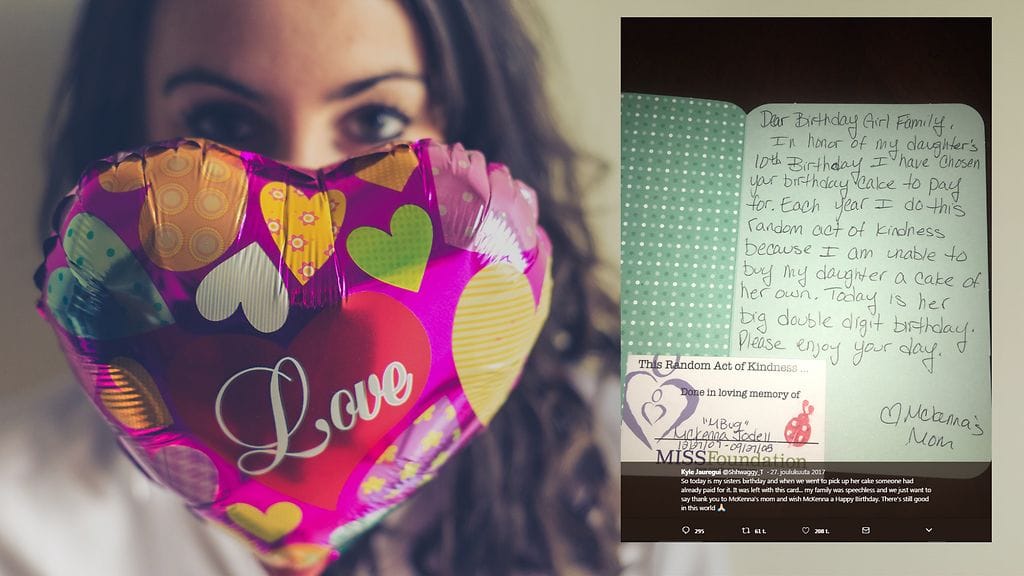 Love
Dear Birthday Girl Family,
In honor of my daughter's
10th Birthday I have chosen
your birthday cake to pay
for. Each year I do this
random act of kindness
because I am unable to
buy my daughter a cake of
her own. Today is her
big double digit birthday.
Please enjoy your day.
♡ Mckenna's
Mom
This Random Act of Kindness ...
Done in loving memory of
"MBug"
Mckenna Jodell
MISSFoundation
Kyle Jauregui @Shhwaggy_T · 27. joulukuuta 2017
So today is my sisters birthday and when we went to pick up her cake someone had
already paid for it. It was left with this card... my family was speechless and we just want to
say thank you to McKenna's mom and wish McKenna a Happy Birthday. There's still good
in this world 🙏
295 61 t. 208 t.